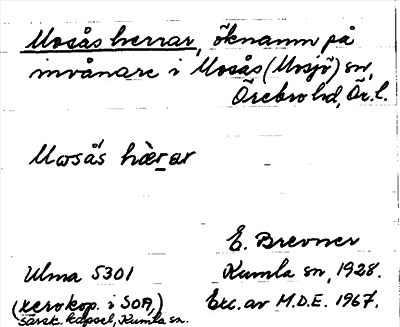 Mosås herrar, öknamn på
invånare i Mosås (Mosjö) sn,
Örebro hd, Ör. l.
Mosås hær ar
E. Brevner
Ulma 5301 Kumla sn, 1928.
(xerokop. i SOA,) Exc. av M.D.E. 1967.
särsk. kapsel, Kumla sn.